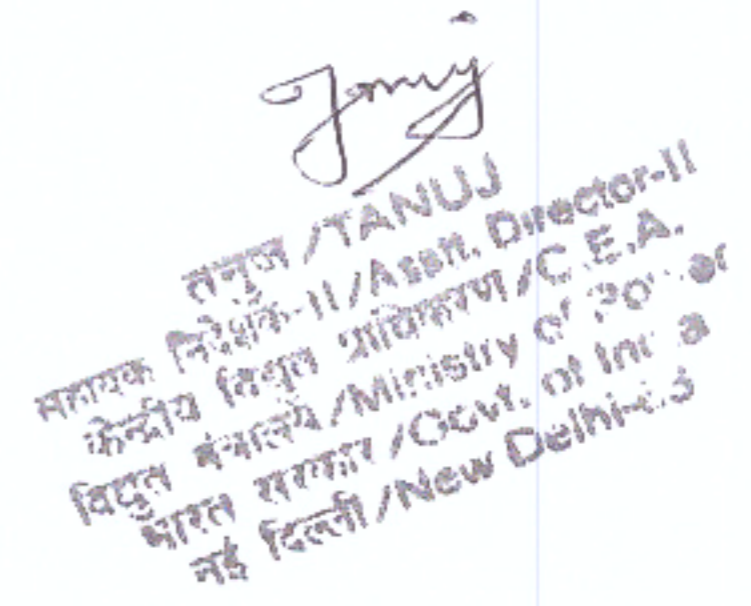 Tanuj
तनुज /TANUJ
सहायक निदेशक-II/Asstt. Director-II
केन्द्रीय विद्युत प्राधिकरण/C.E.A.
विद्युत मंत्रालय /Ministry of Power
भारत सरकार /Govt. of India
नई दिल्ली /New Delhi